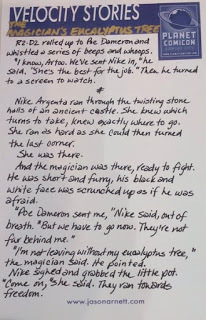 VELOCITY STORIES
THE MAGICIAN'S EUCALYPTUS TREE
PLANET
COMICON
R2-D2 rolled up to Poe Dameron and
whistled a series of beeps and whoops.
"I know, Artoo. We've sent Nike in," he
said. "She's the best for the job." Then he turned
to a screen to watch.
*
Nike Argenta ran through the twisting stone
halls of an ancient castle. She knew which
turns to take, knew exactly where to go.
She ran as hard as she could then turned
the last corner.
She was there.
And the magician was there, ready to fight.
He was short and furry, his black and
white face was scrunched up as if he was
afraid.
"Poe Dameron sent me," Nike said, out of
breath. "But we have to go now. They're not
far behind me."
"I'm not leaving without my eucalyptus tree,"
the magician said. He pointed.
Nike sighed and grabbed the little pot.
"Come on," she said. They ran towards
freedom.
www.jasonarnett.com